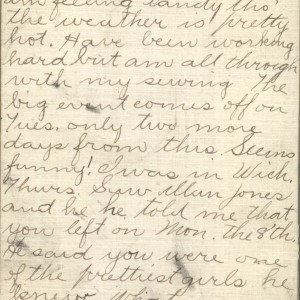 am feeling dandy tho'
the weather is pretty
hot. Have been working
hard but am all through
with my sewing The
big event comes off on
Tues. only two more
days from this. Seems
funny! I was in Wich.
Thurs. Saw Jones
and he he told me that
you left on Mon. the 8th.
He said you were one
of the prettiest girls he
knew. What